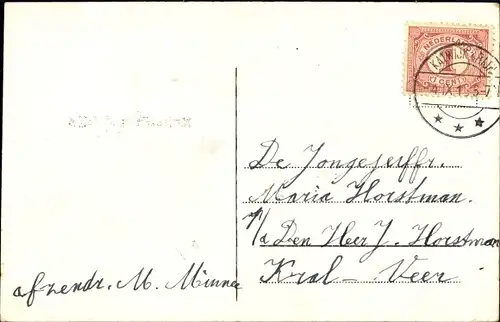 NEDERLAND
1 CENT
De Jongejerffr.
Maria Horstman.
p/a Den Heer J. Horstman
Kral-Veer
afzendr. M. Minnee